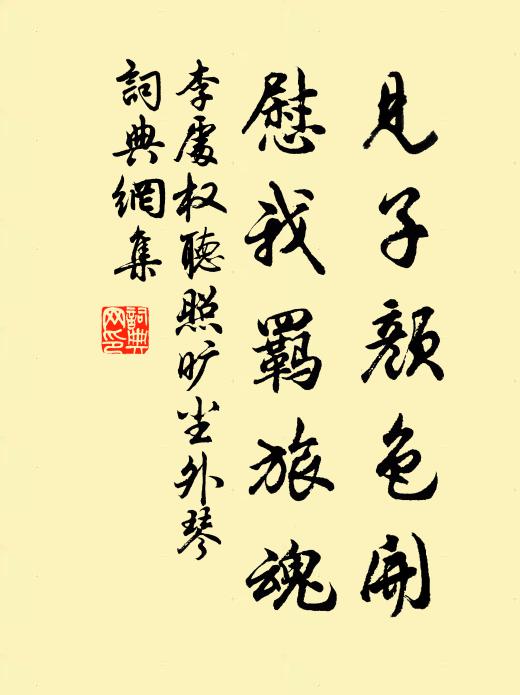 見子顔色開
慰我羈旅魂
李處权聽照旷尘外琴
詞典網集
詞典
网印